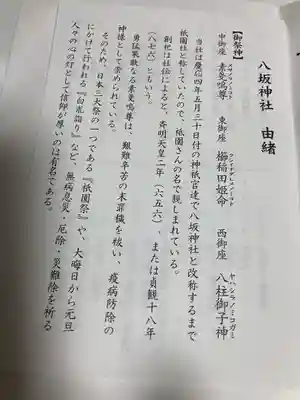 八坂神社 由緒
【御祭神】
スサノヲノミコト
クシイナダヒメノミコト
ヤハシラノミコガミ
中御座 素戔嗚尊 東御座 櫛稲田姫命 西御座 八柱御子神
当社は慶応四年五月三十日付の神祇官達で八坂神社と改称するまで
祇園社と称していたので、祇園さんの名で親しまれている。
創祀は社伝によると、斉明天皇二年(六五六)、または貞観十八年
(八七六)ともいう。
勇猛果敢なる素戔嗚尊は、艱難辛苦の末罪穢を祓い、疫病防除の
神様として崇められている。
そのため、日本三大祭の一つである『祇園祭』や、大晦日から元旦
にかけて行われる『白朮詣り』など、無病息災・厄除・災難除を祈る
人々の心の灯として信仰が厚いのは有名である。